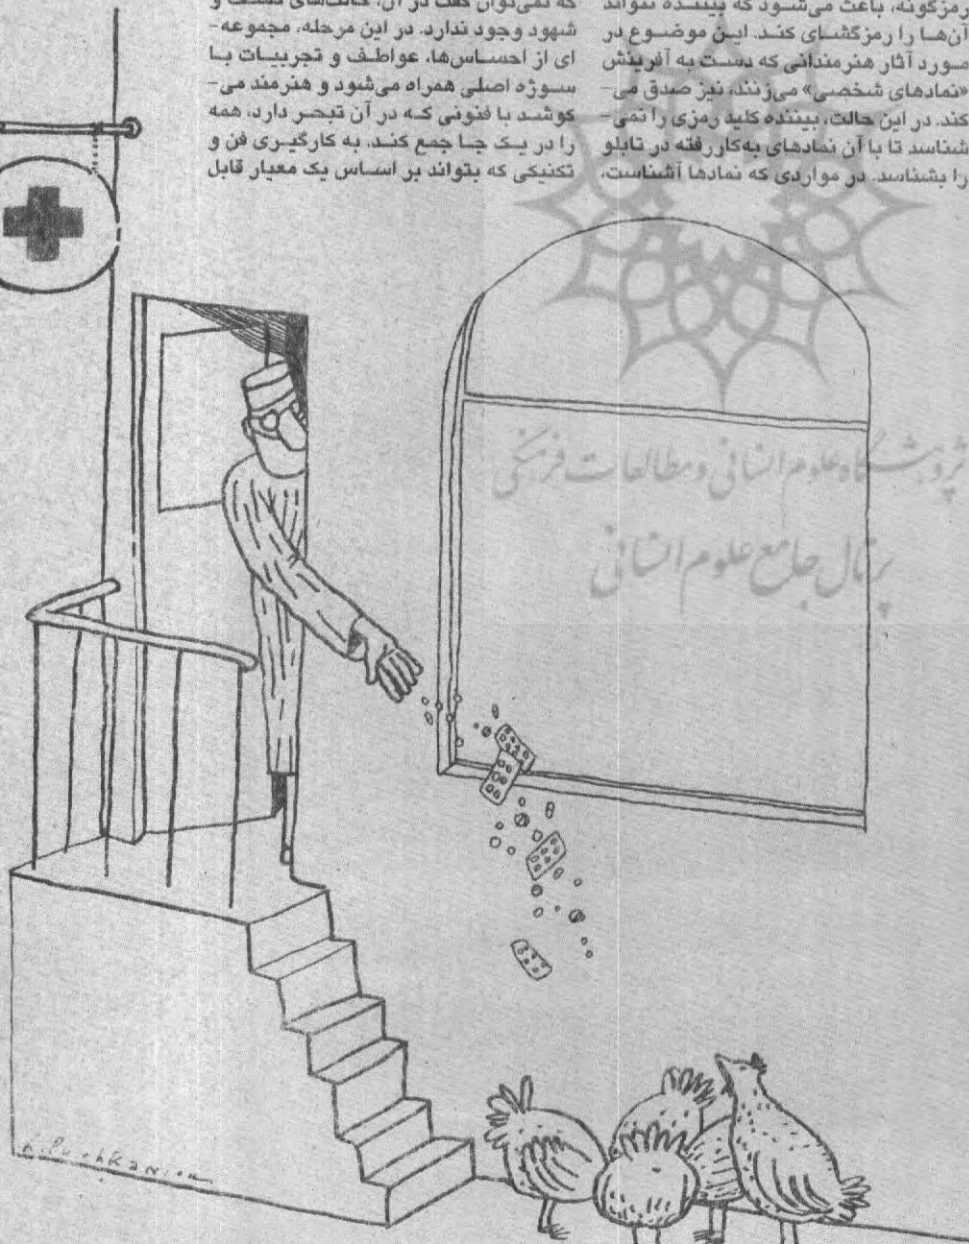 رمزگونه، باعث می‌شود که بیننده نتواند
آن‌ها را رمزگشای کند. این موضوع در
مورد آثار هنرمندانی که دست به آفرینش
«نمادهای شخصی» می‌زنند، نیز صدق می-
کند. در این حالت، بیننده کلید رمزی را نمی-
شناسد تا با آن نمادهای به‌کاررفته در تابلو
را بشناسد. در مواردی که نمادها آشناست،
که نمی‌توان گفت در آن، حالت‌های کشف و
شهود وجود ندارد. در این مرحله، مجموعه-
ای از احساس‌ها، عواطف و تجربیات با
سوژه اصلی همراه می‌شود و هنرمند می-
کوشد با فنونی که در آن تبحر دارد، همه
را در یک جا جمع کند. به کارگیری فن و
تکنیکی که بتواند بر اساس یک معیار قابل
پژوهشگاه علوم انسانی و مطالعات فرهنگی
پرتال جامع علوم انسانی